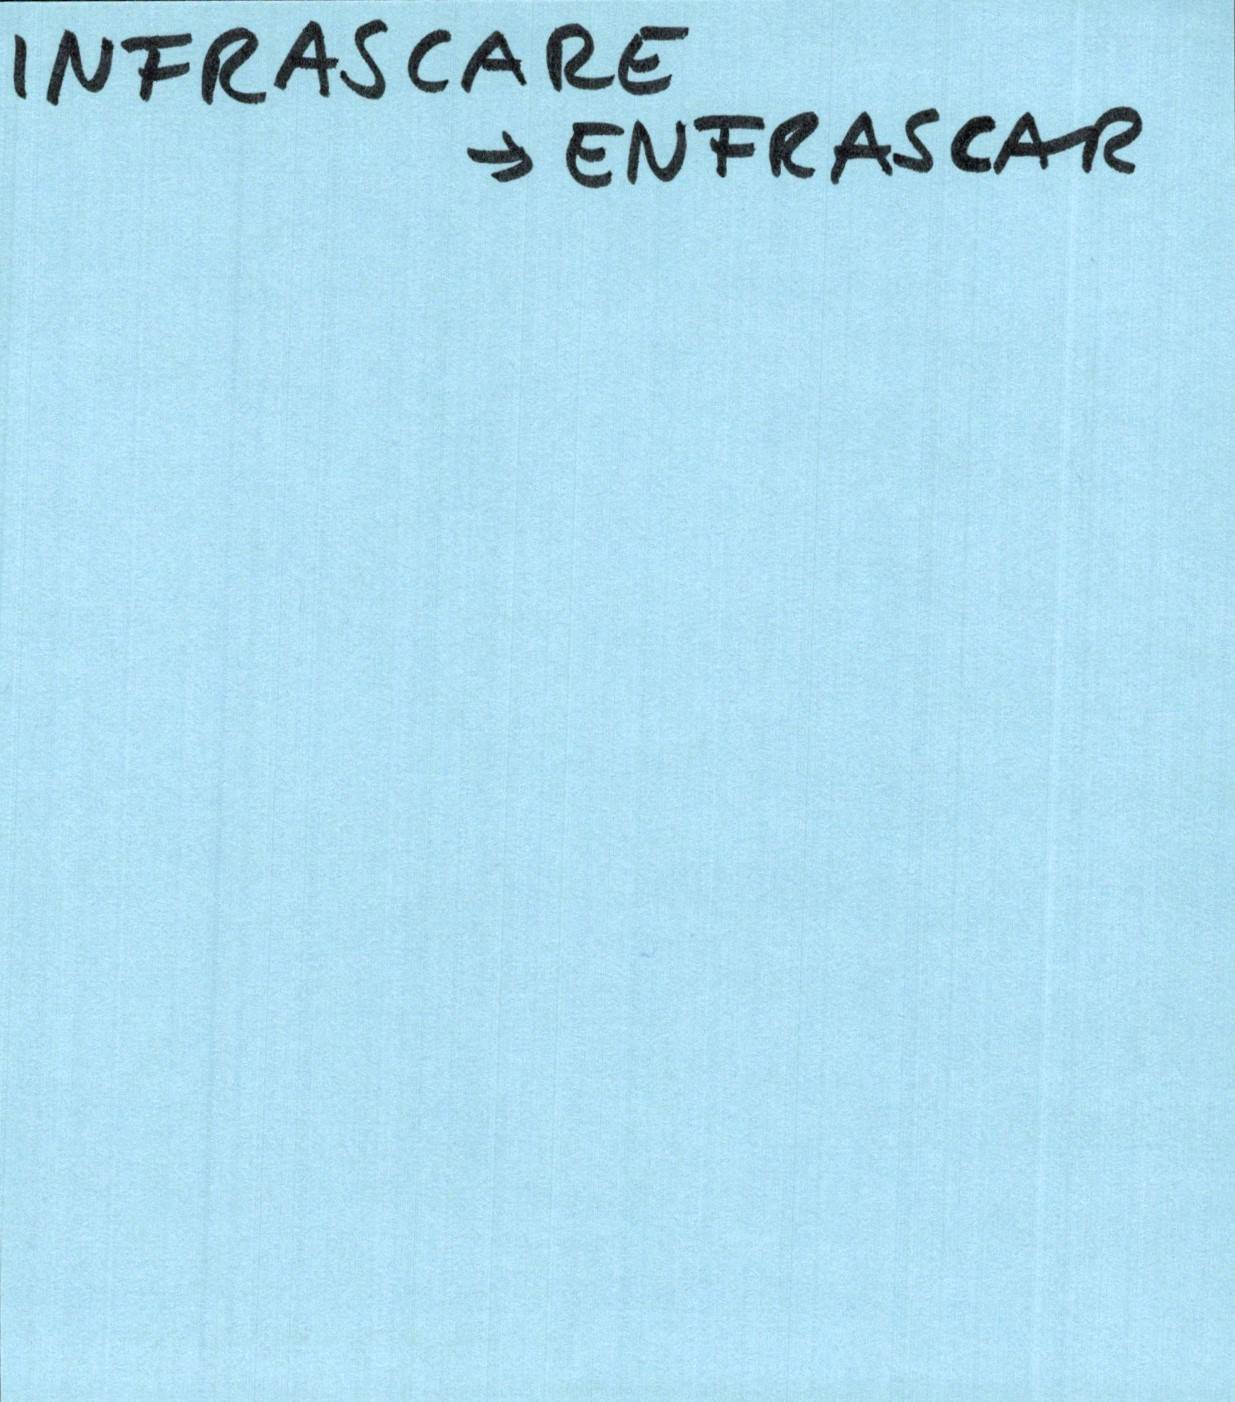 INFRASCARE
→ ENFRASCAR